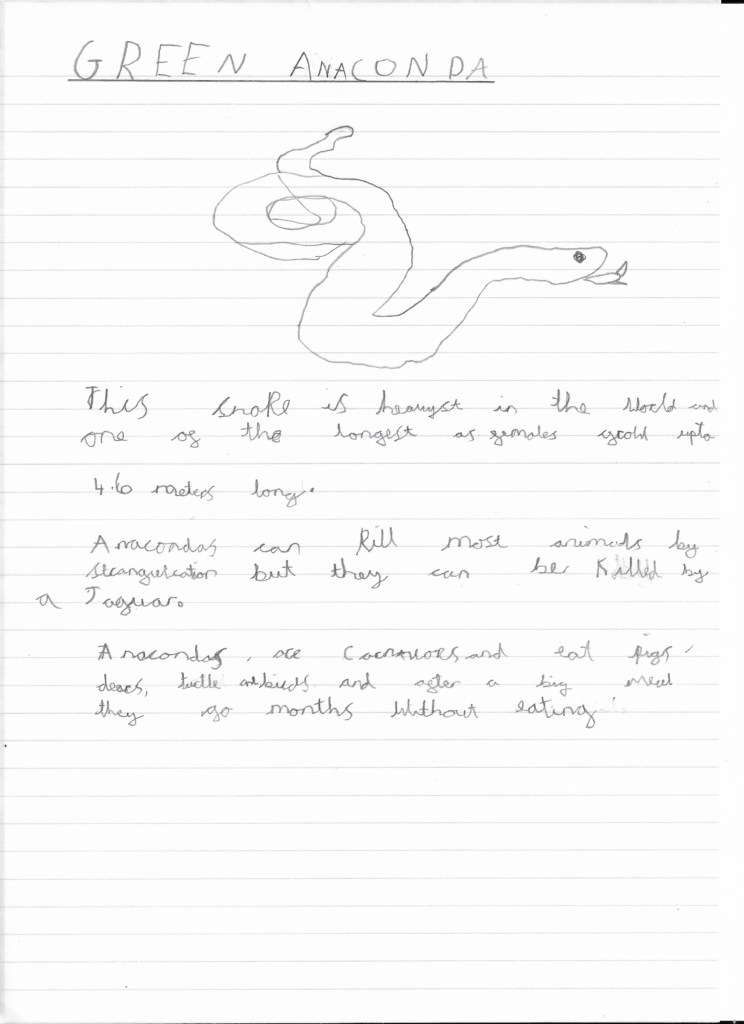 GREEN ANACONDA
This snake is heavyst in the World and
one of the longest as females grow upto
4.6 meters long.
Anacondas can kill most animals by
but they can be Killed by
a Jaguar.
Anacondas, are and eat pigs,
dears, turtle and birds and after a big meal
they go months Without eating.